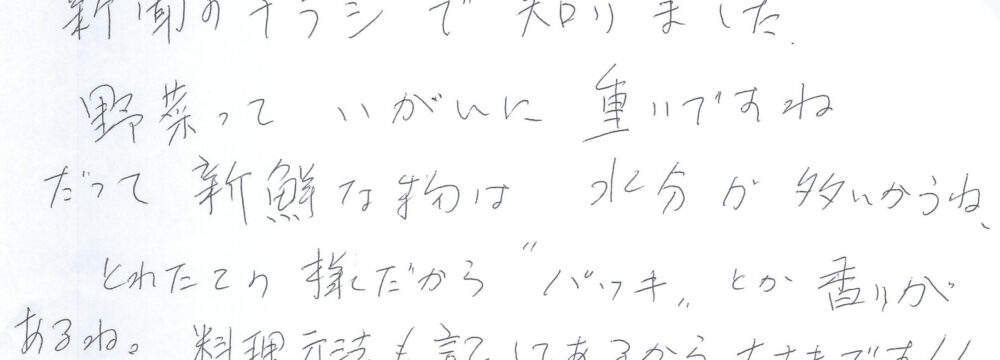 新聞のチラシで知りました.
野菜って いがいに 重いですね
だって 新鮮な物は 水分が多いからね、
とれたての様だから〝バッキ〟とか香りが
あるね。料理方法も記してあるから